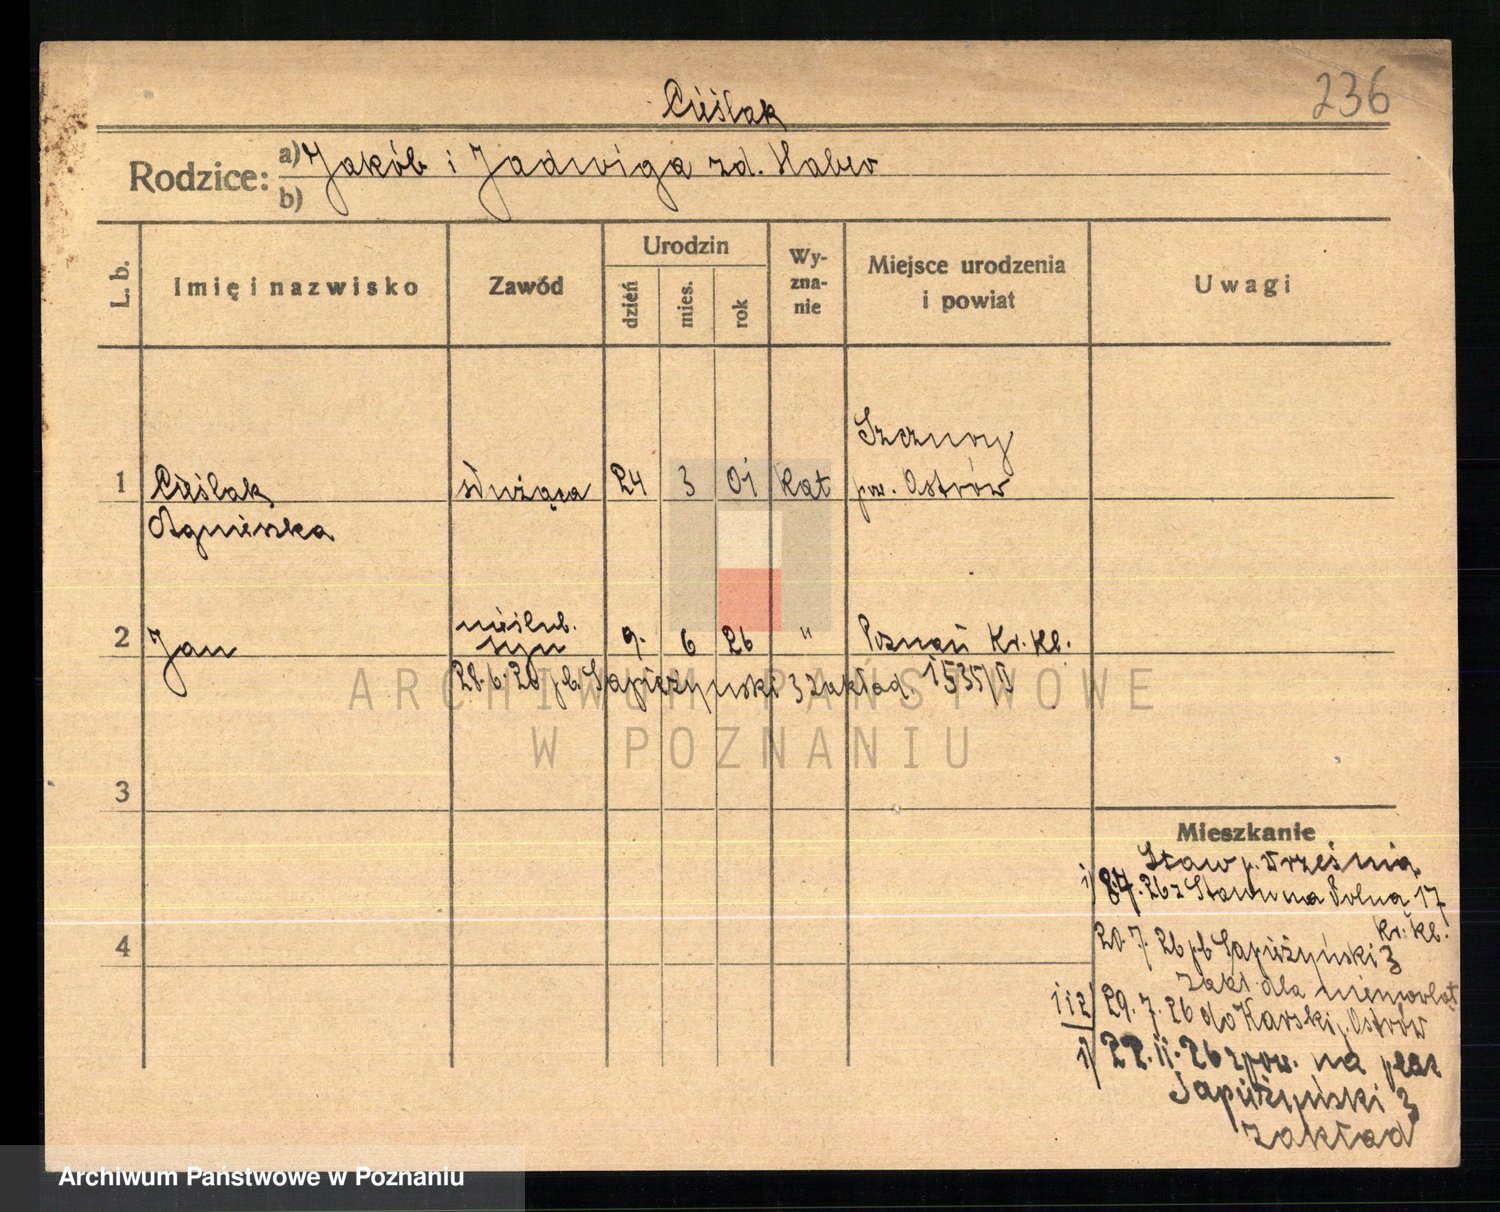 236
Cieślak
Rodzice: a) Jakób i Jadwiga zd. Haber
b)
L. b. Imię i nazwisko Zawód Urodzin dzień mies. rok Wyzna-nie Miejsce urodzenia i powiat Uwagi
Szczury
1 Cieślak służąca 24 3 01 kat pow. Ostrów
Agnieszka
nieślub.
2 Jan syn 9. 6 26 " Poznań Kr. Kl.
28.6.26 pl. Sapieżyński 3 zakład 1535/II
ARCHIWUM PAŃSTWOWE
W POZNANIU
3
Mieszkanie
Staw p. Września
1) 8.7.26 z Stawu na Polną 17
kr. kl.
4
20.7.26 pl. Sapieżyński 3
zakł. dla niemowląt
1 i 2) 29.7.26 do Karski p. Ostrów
1) 22.11.26 z pow. na plac
Sapieżyński 3
zakład
Archiwum Państwowe w Poznaniu